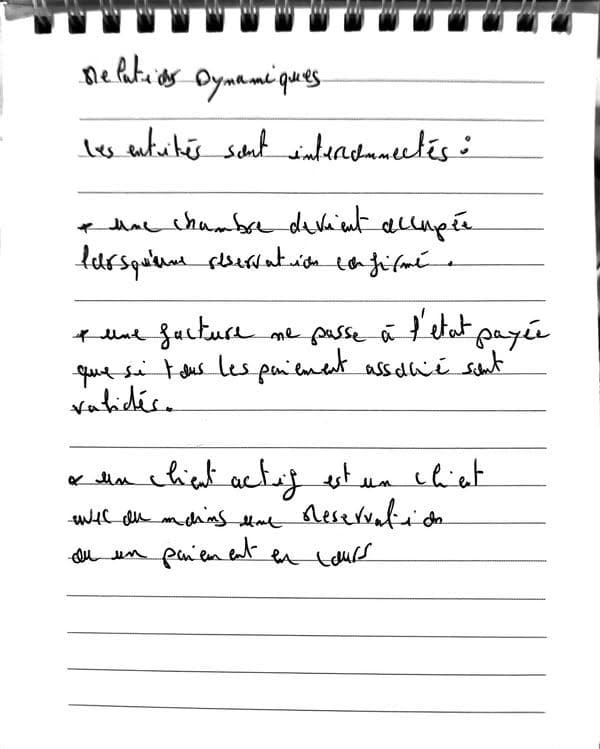 Relations Dynamiques
les entités sont interconnectés :
* une chambre devient occupée
lorsqu'une réservation confirmé .
* une facture ne passe à l'état payée
que si tous les paiement associé sont
validés.
* un client actif est un client
avec au moins une Reservation
ou un paiement en cours